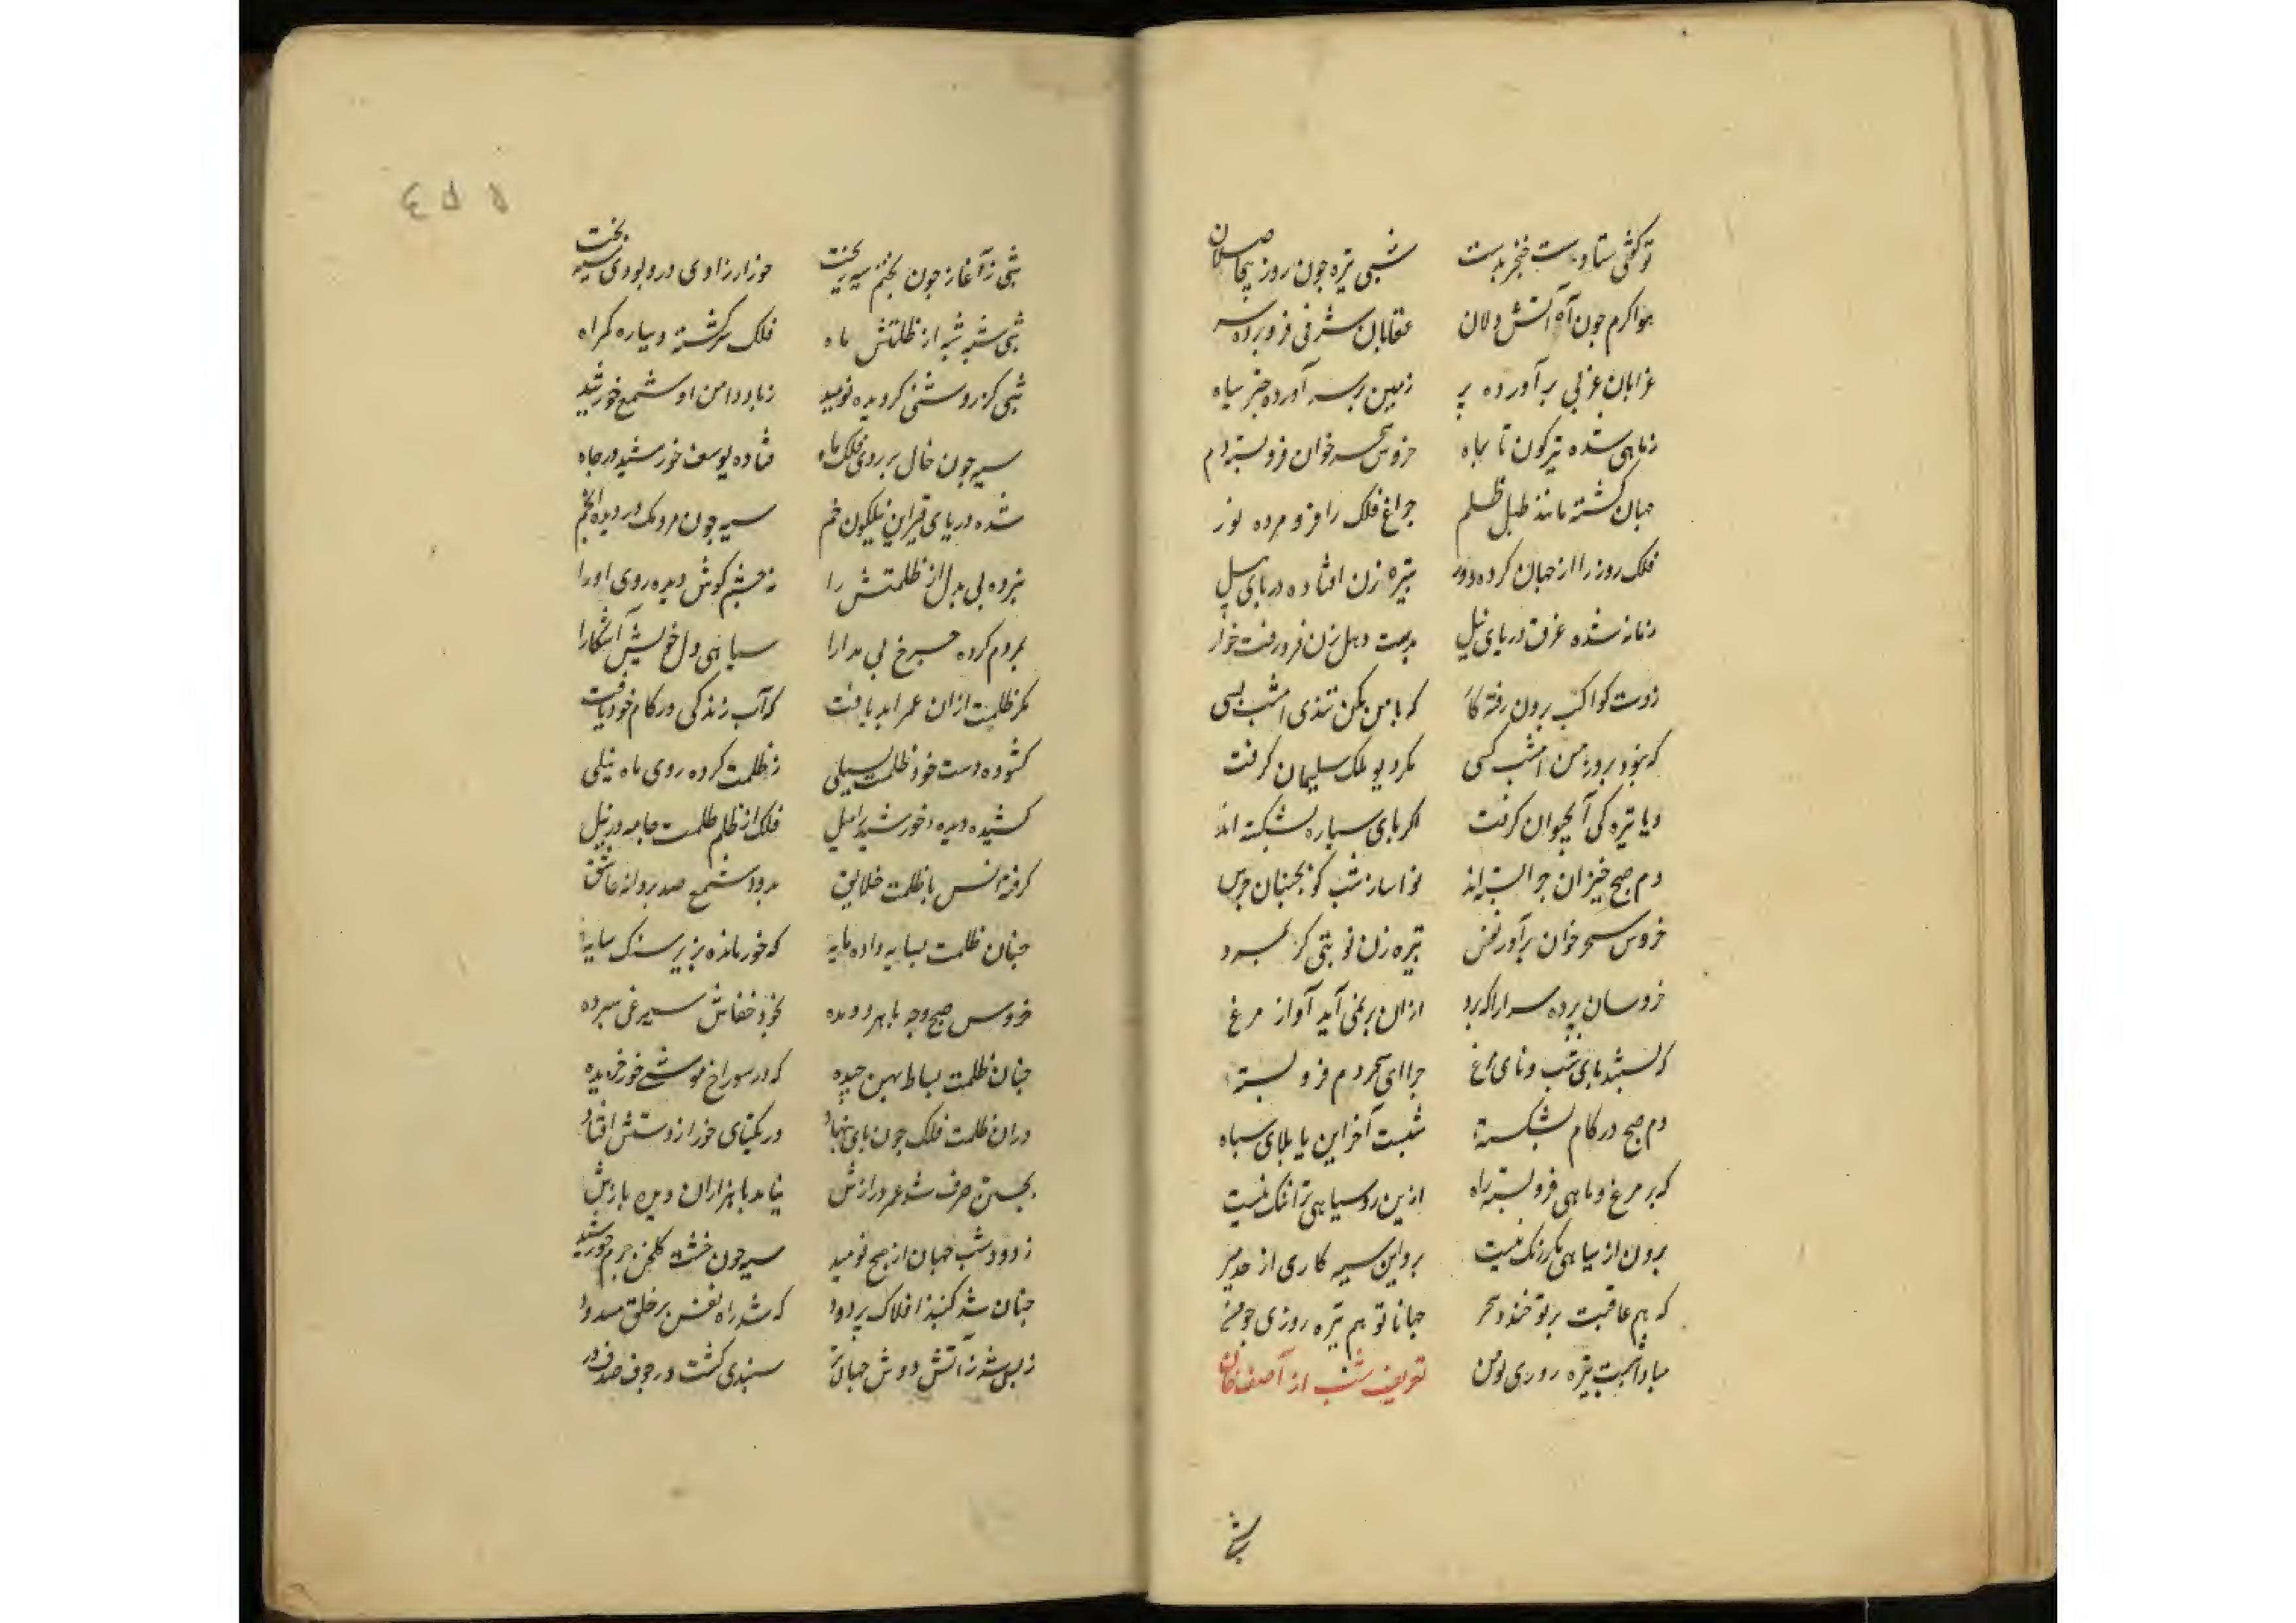 تو کوئی ستاده‌ست خنجر بدست شبی تیره جون روز بیحاصلان
هوا کرم جون آه آتش دلان عقابان شرقی فرو برده سر
غرابان غربی برآورده پر زمین بر سر آورده چتر سیاه
زماهی شده تیرکون تا بماه خروس سحرخوان فروبسته دم
جهان کشته مانند طبل ظلم جراغ فلک را فرو مرده نور
فلک روز را از جهان کرده دور تبیره زن افتاده در پای پیل
زمانه شده غرق دریای نیل بدست دهل زن فرو رفت خار
زدست کواکب برون رفته کار که با من مکن تندی امشب بسی
که نبود بروز من امشب کسی مکر دیو ملک سلیمان کرفت
و یا تیره کی آب حیوان کرفت مکر پای سیاره بشکسته اند
دم صبح خیزان جرا بسته اند نواساز شب کو بجنبان جرس
خروس سحر خوان برآور نفس تبیره زن نوبتی کز بمرد
خروسان پرده سرا را که برد ازان برنمی آید آواز مرغ
که بستند پای شب و نای مرغ جرا ای سحر دم فرو بسته
دم صبح در کام بشکسته شبست آخر این یا بلای سیاه
که بر مرغ و ماهی فرو بسته راه ازین رو سیاهی ترا ننک نیست
برون از سیاهی مکر رنک نیست برو این سیه کاری از حد مبر
که هم عاقبت بر تو خندد سحر جهانا تو هم تیره روزی جو من
مبادا شبت تیره روزی جو من تعریف شب از آصف خان
شبی
شبی ز آغاز جون بختم سیه بخت جوزار زاوی درو بودی سیه بخت
شبی شبه شبه از ظلمتش ماه فلک سرکشته و سیاره کمراه
شبی کز روشنی کردیده نومید زباد دامن او شمع خورشید
سیه جون خال بر روی فلک ماه فتاده یوسف خورشید در جاه
شده دریای قیر این نیلکون خم سیه جون مردمک در دیده انجم
نبرده پی بدل از ظلمتش را نه جشم کوش دیده روی او را
بمردم کرده جرخ بی مدارا سیاهی دل خویش آشکارا
مکر ظلمت ازان عمر ابد یافت که آب زندکی در کام خود یافت
کشوده دست خود ظلمت بسیلی ز ظلمت کرده روی ماه نیلی
کشیده دیده خورشید را میل فلک از ظلم ظلمت جامه در نیل
کرفته انس با ظلمت خلایق بدود شمع صد پروانه عاشق
جنان ظلمت بسایه داده مایه که خور مانده بزیر سنک سایه
خروس صبح وجه بابر دویده بخود خفاش سیمرغی سپرده
جنان ظلمت بساط پهن جیده که در سوراخ موشی خور خزیده
دران ظلمت فلک جون پای بنهاد در یکتای خور از دستش افتاد
بجستن صرف شد عمر درازش نیامد با هزاران دیده بازش
ز دود شب جهان از صبح نومید سیه جون خشت کلخن جرم خورشید
جنان شد کنبد افلاک پر دود که شد راه نفس بر خلق مسدود
ز بس شد ز آتش دوش جهان پر سپندی کشت در جوف صدف در